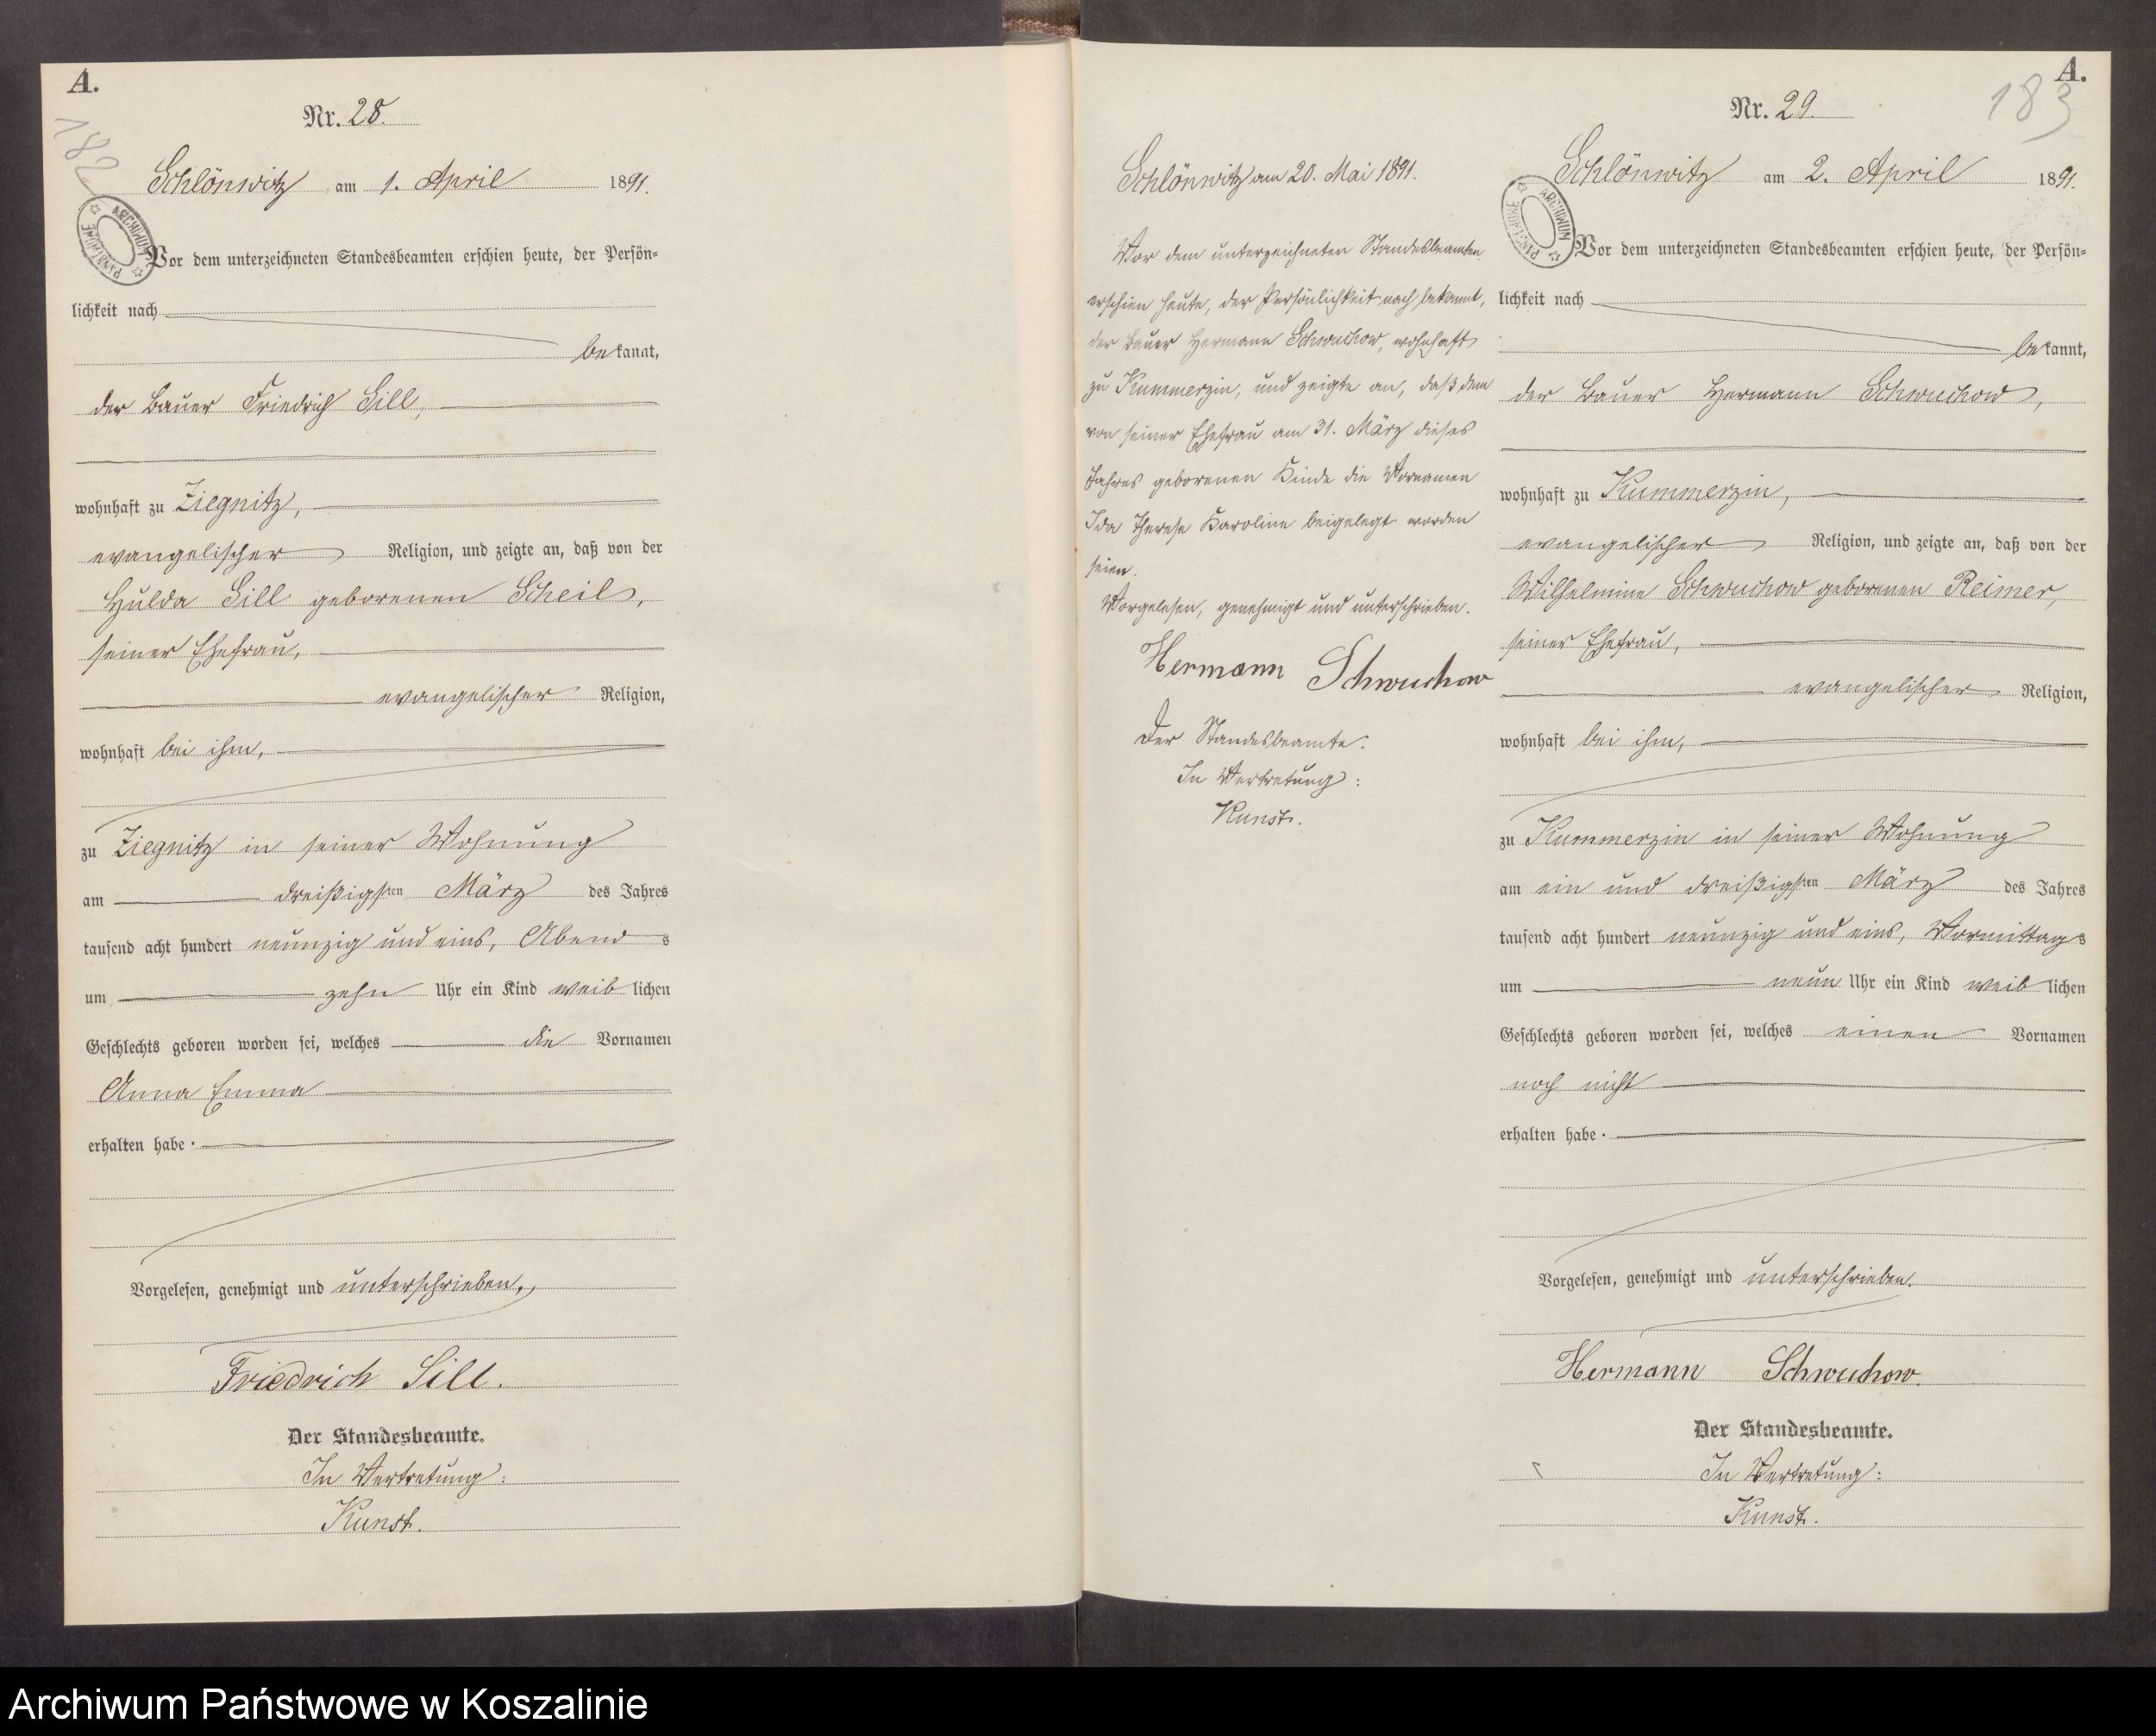 A.
182
Nr. 28.
Schlönwitz am 1. April 1891.
ARCHIWUM PAŃSTWOWE
Vor dem unterzeichneten Standesbeamten erschien heute, der Persön-
lichkeit nach
bekannt,
der Bauer Friedrich Sill,
wohnhaft zu Ziegnitz,
evangelischer Religion, und zeigte an, daß von der
Hulda Sill geborenen Scheil,
seiner Ehefrau,
evangelischer Religion,
wohnhaft bei ihm,
zu Ziegnitz in seiner Wohnung
am dreißigsten März des Jahres
tausend acht hundert neunzig und eins, Abends
um zehn Uhr ein Kind weiblichen
Geschlechts geboren worden sei, welches die Vornamen
Anna Emma
erhalten habe.
Vorgelesen, genehmigt und unterschrieben.
Friedrich Sill.
Der Standesbeamte.
In Vertretung:
Kunst.
Schlönwitz am 20. Mai 1891.
Vor dem unterzeichneten Standesbeamten
erschien heute, der Persönlichkeit nach bekannt,
der Bauer Hermann Schwuchow, wohnhaft
zu Kummerzin, und zeigte an, daß dem
von seiner Ehefrau am 31. März dieses
Jahres geborenen Kinde die Vornamen
Ida Therese Karoline beigelegt worden
seien.
Vorgelesen, genehmigt und unterschrieben.
Hermann Schwuchow
Der Standesbeamte.
In Vertretung:
Kunst.
A.
183
Nr. 29.
Schlönwitz am 2. April 1891.
ARCHIWUM PAŃSTWOWE
Vor dem unterzeichneten Standesbeamten erschien heute, der Persön-
lichkeit nach
bekannt,
der Bauer Hermann Schwuchow,
wohnhaft zu Kummerzin,
evangelischer Religion, und zeigte an, daß von der
Wilhelmine Schwuchow geborenen Reimer,
seiner Ehefrau,
evangelischer Religion,
wohnhaft bei ihm,
zu Kummerzin in seiner Wohnung
am ein und dreißigsten März des Jahres
tausend acht hundert neunzig und eins, Vormittags
um neun Uhr ein Kind weiblichen
Geschlechts geboren worden sei, welches einen Vornamen
noch nicht
erhalten habe.
Vorgelesen, genehmigt und unterschrieben.
Hermann Schwuchow.
Der Standesbeamte.
In Vertretung:
Kunst.
Archiwum Państwowe w Koszalinie